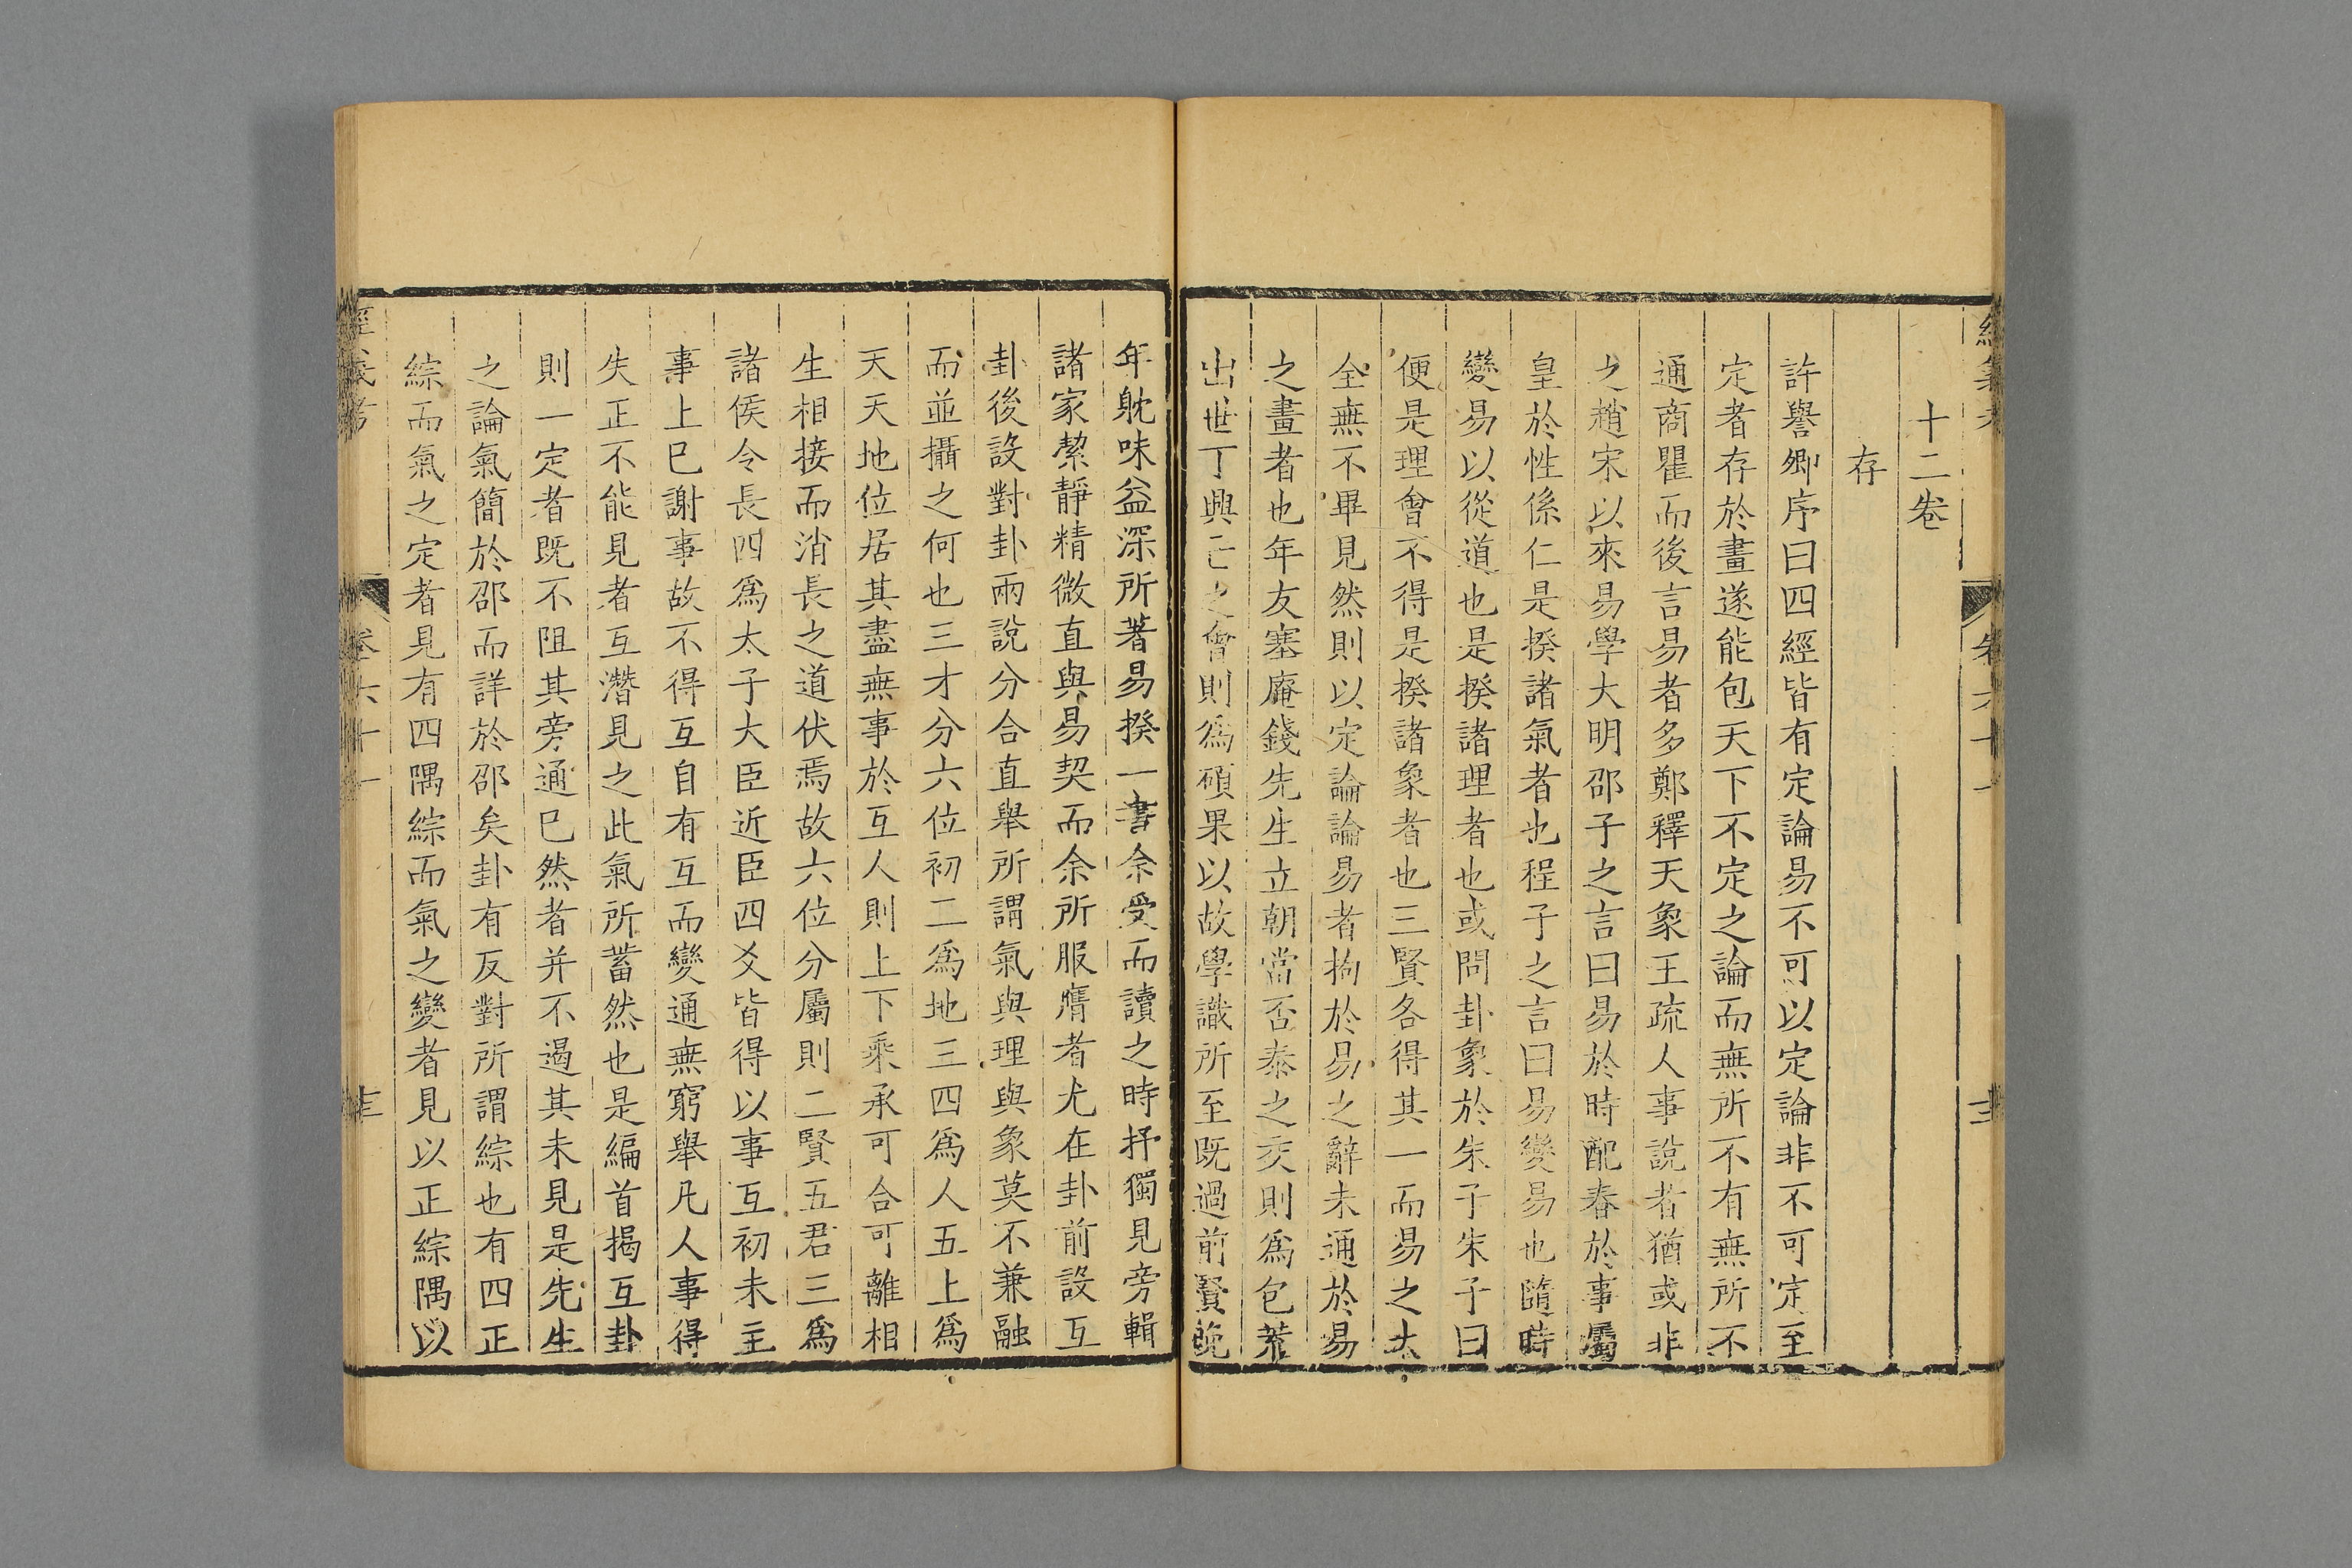 十二卷
存
許譽卿序曰四經皆有定論易不可以定論非不可定至
定者存於畫遂能包天下不定之論而無所不有無所不
通商瞿而後言易者多鄭釋天象王疏人事說者猶或非
之趙宋以來易學大明邵子之言曰易於時配春於事屬
皇於性係仁是揆諸氣者也程子之言曰易變易也隨時
變易以從道也是揆諸理者也或問卦象於朱子朱子曰
便是理會不得是揆諸象者也三賢各得其一而易之大
全無不畢見然則以定論論易者拘於易之辭未通於易
之畫者也年友塞庵錢先生立朝當否泰之交則為包荒
出世丁興亡之會則為碩果以故學識所至既過前賢晚
年躭味益深所著易揆一書余受而讀之時抒獨見旁輯
諸家潔靜精微直與易契而余所服膺者尤在卦前設互
卦後設對卦兩說分合直舉所謂氣與理與象莫不兼融
而並攝之何也三才分六位初二為地三四為人五上為
天天地位居其盡無事於互人則上下乘承可合可離相
生相接而消長之道伏焉故六位分屬則二賢五君三為
諸侯令長四為太子大臣近臣四爻皆得以事互初未主
事上已謝事故不得互自有互而變通無窮舉凡人事得
失正不能見者互潛見之此氣所蓄然也是編首揭互卦
則一定者既不阻其旁通已然者并不遏其未見是先生
之論氣簡於邵而詳於邵矣卦有反對所謂綜也有四正
綜而氣之定者見有四隅綜而氣之變者見以正綜隅以
經義考
卷六十一